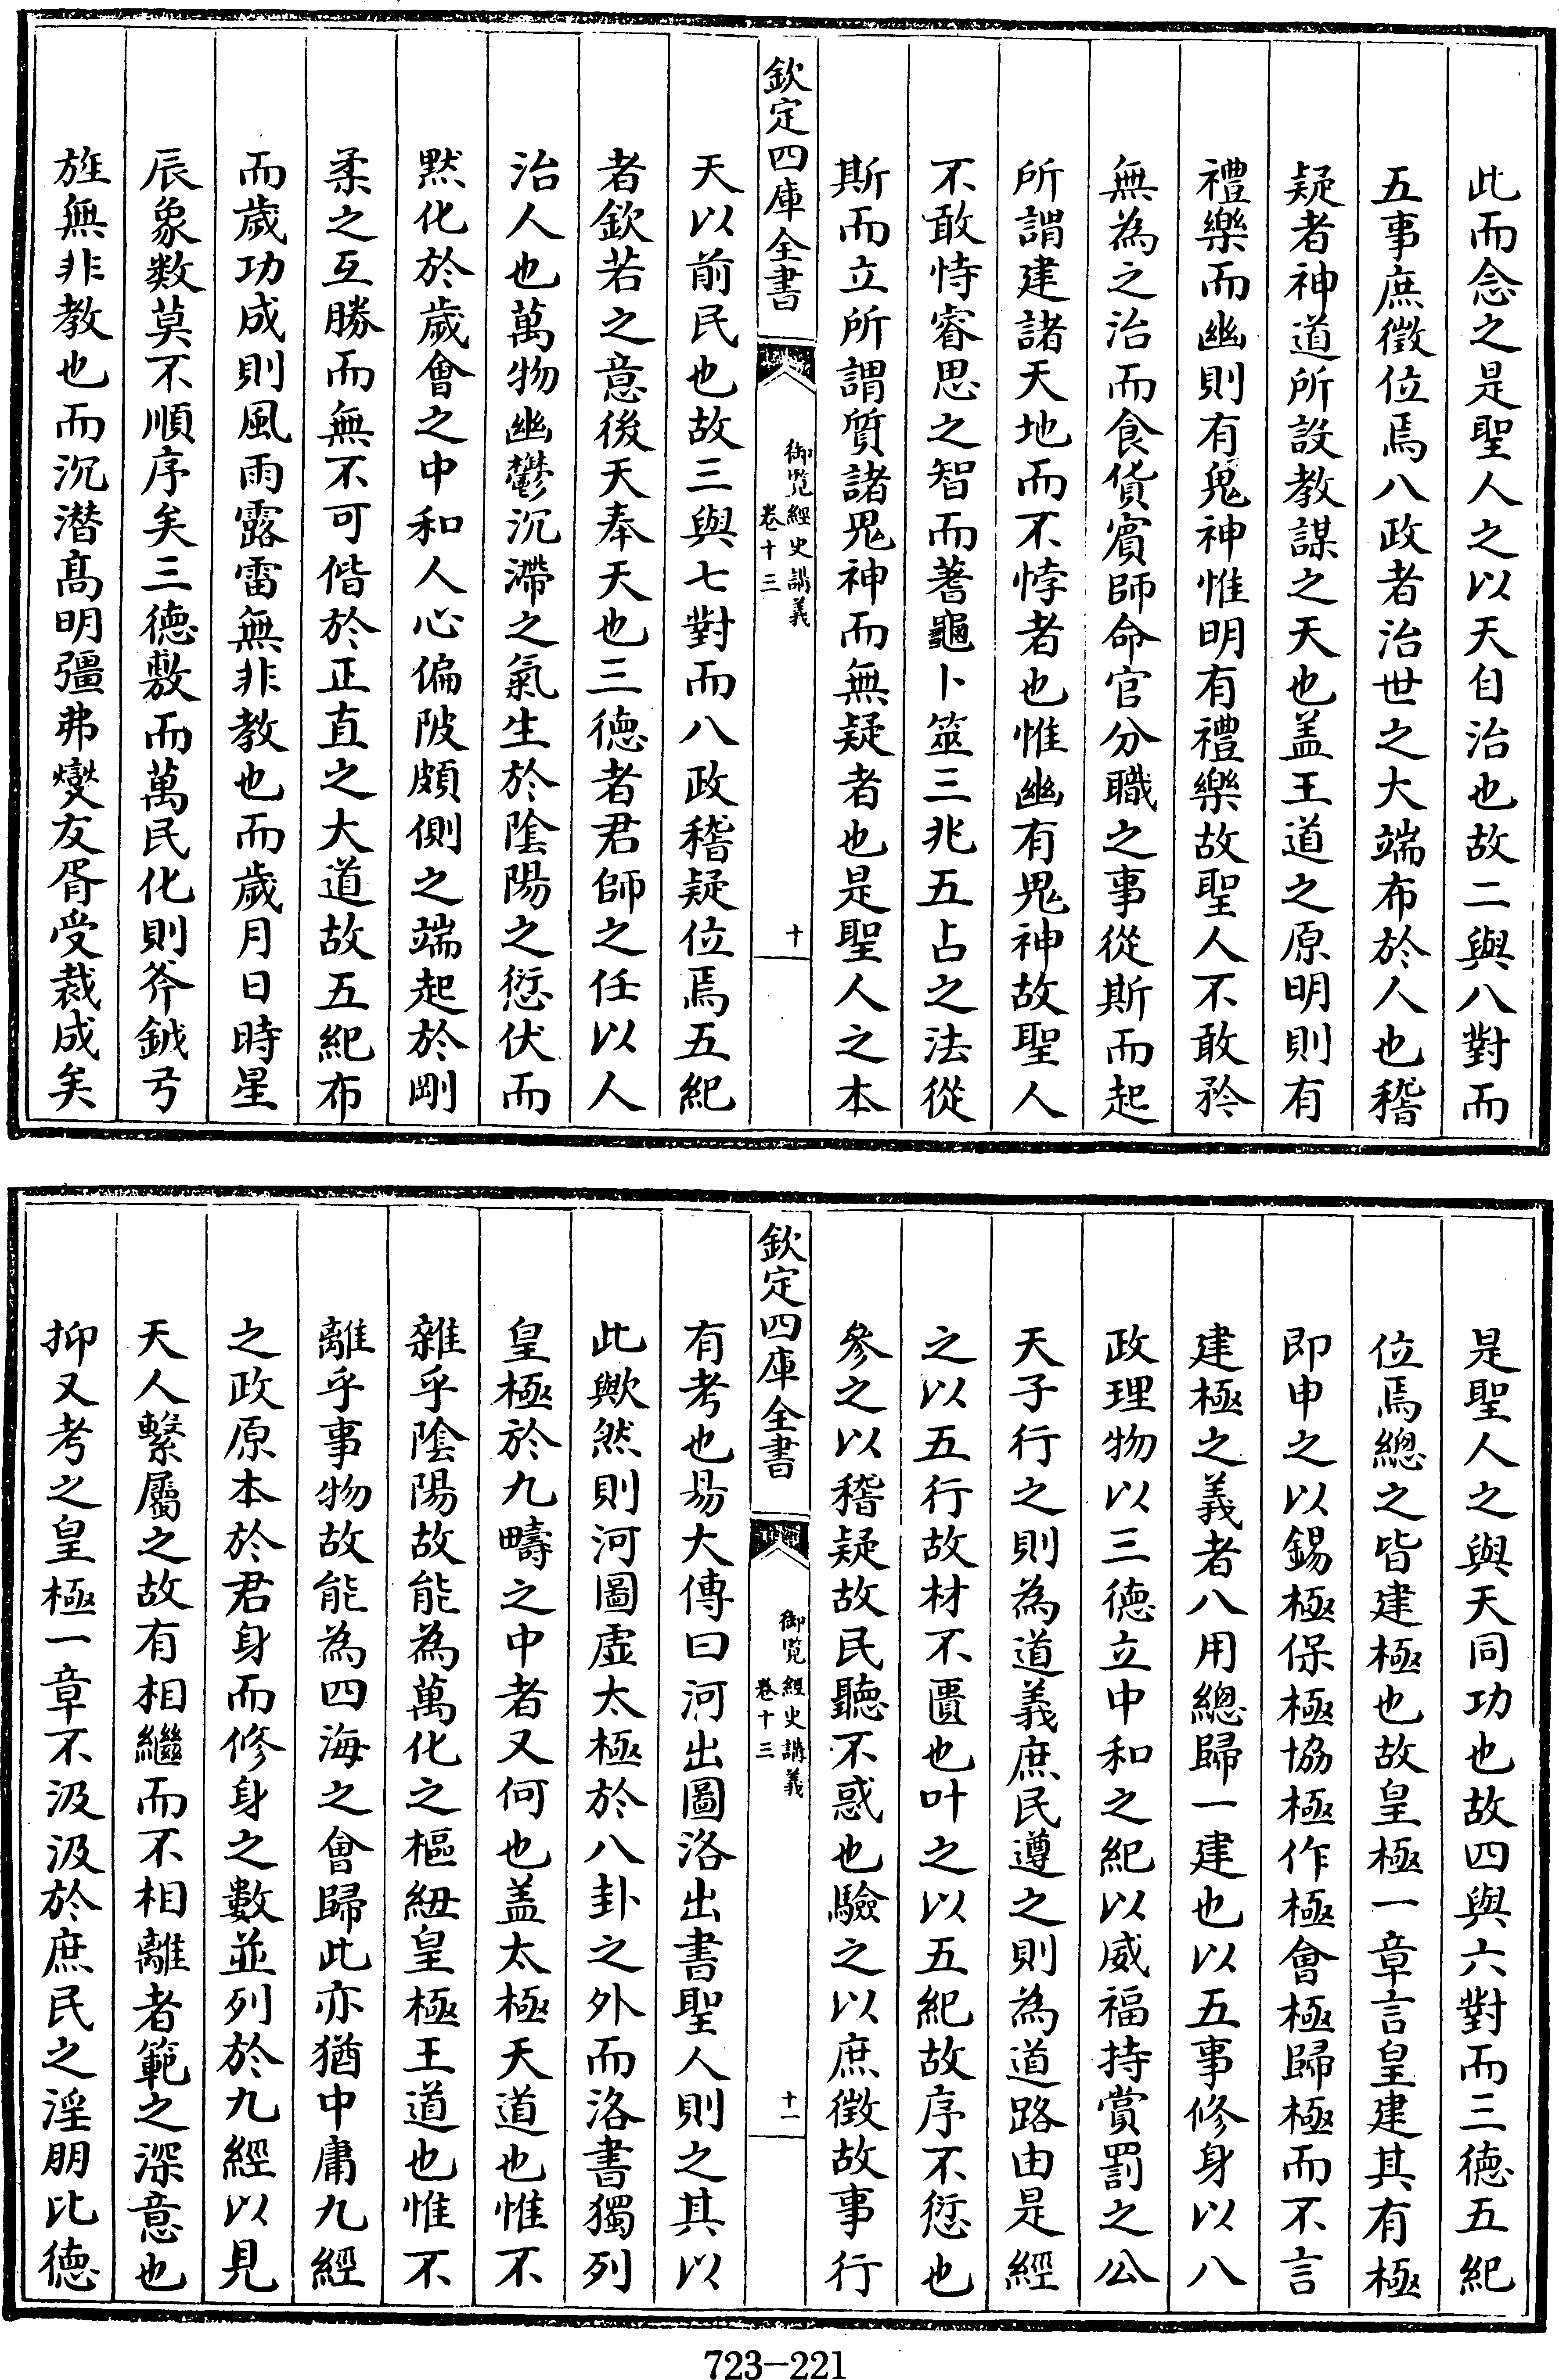 此而念之是聖人之以天自治也故二與八對而
五事庶徵位焉八政者治世之大端布於人也稽
疑者神道所設教謀之天也盖王道之原明則有
禮樂而幽則有鬼神惟明有禮樂故聖人不敢矜
無為之治而食貨賓師命官分職之事從斯而起
所謂建諸天地而不悖者也惟幽有鬼神故聖人
不敢恃睿思之智而蓍龜卜筮三兆五占之法從
斯而立所謂質諸鬼神而無疑者也是聖人之本
欽定四庫全書
御覽經史講義
卷十三
十
天以前民也故三與七對而八政稽疑位焉五紀
者欽若之意後天奉天也三德者君師之任以人
治人也萬物幽鬱沉滯之氣生於陰陽之愆伏而
默化於歲會之中和人心偏陂頗側之端起於剛
柔之互勝而無不可偕於正直之大道故五紀布
而歲功成則風雨露雷無非教也而歲月日時星
辰象數莫不順序矣三德敷而萬民化則斧鉞弓
旌無非教也而沉潛髙明彊弗燮友胥受裁成矣
是聖人之與天同功也故四與六對而三德五紀
位焉總之皆建極也故皇極一章言皇建其有極
即申之以錫極保極協極作極會極歸極而不言
建極之義者八用總歸一建也以五事修身以八
政理物以三德立中和之紀以威福持賞罰之公
天子行之則為道義庶民遵之則為道路由是經
之以五行故材不匱也叶之以五紀故序不愆也
參之以稽疑故民聽不惑也驗之以庶徵故事行
欽定四庫全書
御覽經史講義
卷十三
十一
有考也易大傳曰河出圖洛出書聖人則之其以
此歟然則河圖虛太極於八卦之外而洛書獨列
皇極於九疇之中者又何也盖太極天道也惟不
雜乎陰陽故能為萬化之樞紐皇極王道也惟不
離乎事物故能為四海之會歸此亦猶中庸九經
之政原本於君身而修身之數並列於九經以見
天人繫屬之故有相繼而不相離者範之深意也
抑又考之皇極一章不汲汲於庶民之淫朋比德
723-221